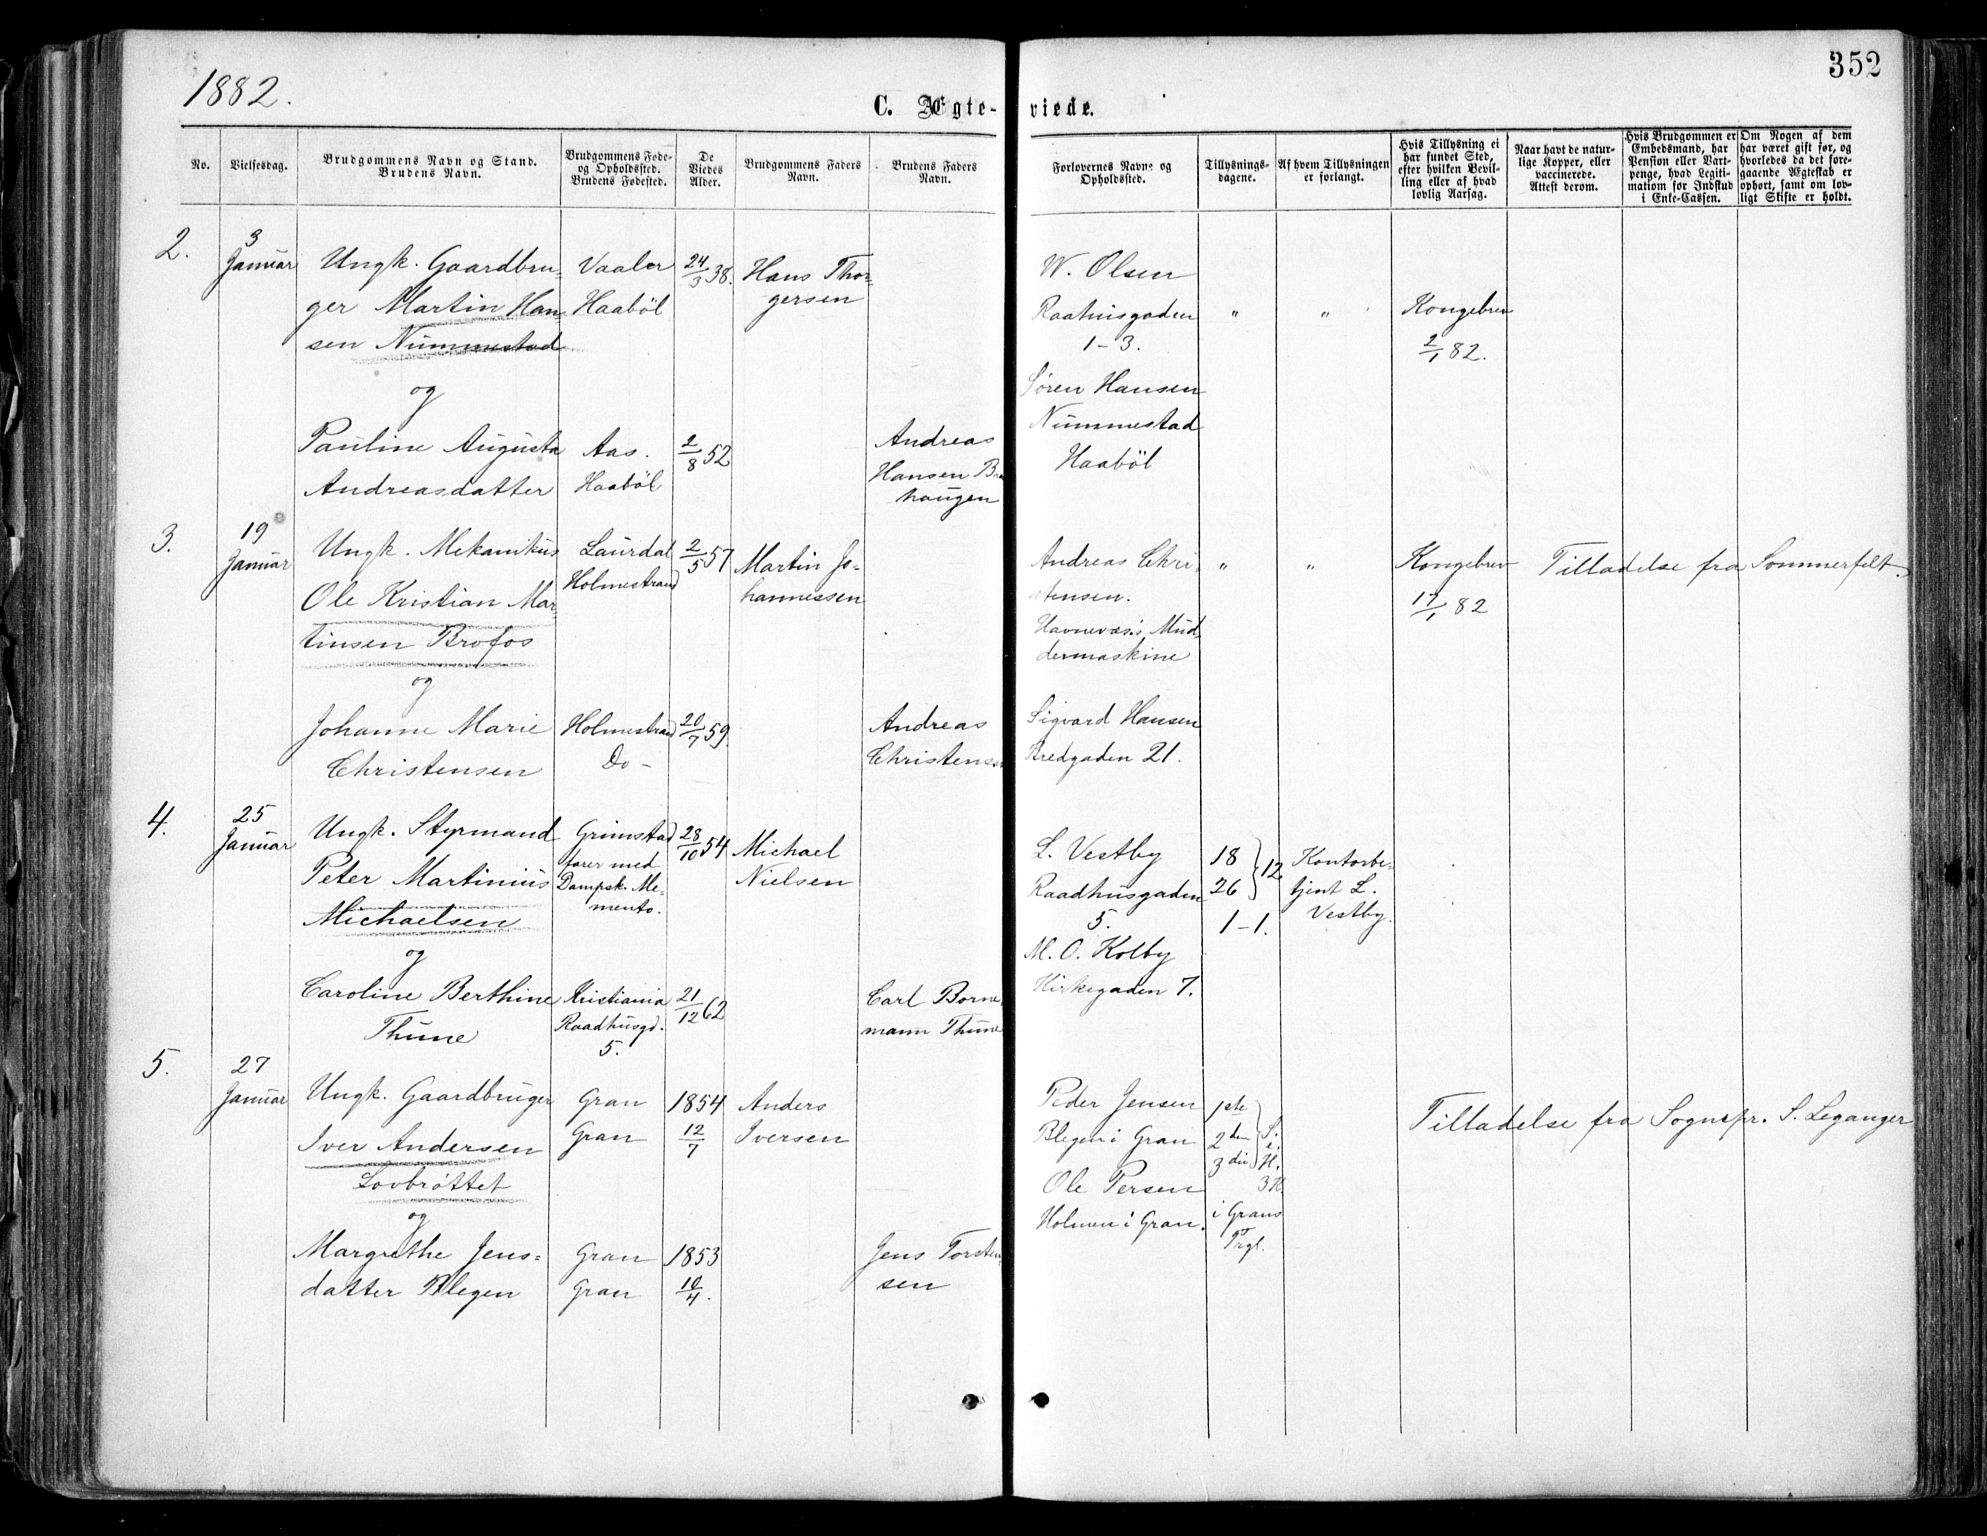 1882.
352
C. Ægte-viede.
No.
Vielsesdag.
Brudgommens Navn og Stand.
Brudens Navn.
Brudgommens Føde-
og Opholdssted.
Brudens Fødested.
De
Viedes
Alder.
Brudgommens Faders
Navn.
Brudens Faders
Navn.
Forlovernes Navne og
Opholdssted.
Tillysnings-
dagene.
Af hvem Tillysningen
er forlangt.
Hvis Tillysning ei
har fundet Sted,
efter hvilken Bevil-
ling eller af hvad
lovlig Aarsag.
Naar havt de natur-
lige Kopper, eller
vaccinerede.
Attest derom.
Hvis Brudgommen er
Embedsmand, har
Pension eller Vart-
penge, hvad Legiti-
mation for Indskud
i Enke-Cassen.
Om Nogen af dem
har været gift før, og
hvorledes da det fore-
gaaende Ægteskab er
ophørt, samt om lov-
ligt Skifte er holdt.
2.
3
Januar
Ungk. Gaardbru-
ger Martin Han-
sen Nummestad
og
Pauline Augusta
Andreasdatter
Vaaler
Haabøl
Aas.
Haabøl
24/3 38.
2/8 52
Hans Thor-
gersen
Andreas
Hansen
haugen
W. Olsen
Raahusgaden
1-3.
Søren Hansen
Nummestad
Haabøl
" "
Kongebrev
2/1 82.
3.
19
Januar
Ungk. Mekanikus
Ole Kristian Mar-
tinsen Brofos
og
Johanne Marie
Christensen
Laurdal
Holmestrand
Holmestrand
Do -
2/5 57
20/7 59
Martin Jo-
hannessen
Andreas
Christensen
Andreas Chri-
stensen.
Havnevæs's Mud-
dermaskine
Sigvard Hansen
Bredgaden 21.
" "
Kongebrev
17/1 82
Tilladelse fra Sommerfelt.
4.
25
Januar
Ungk. Styrmand
Peter Martinius
Michaelsen
og
Caroline Berthine
Thune
Grimstad
farer med
Dampsk. Me-
mento.
Kristiania
Raadhusgd.
5.
28/10 54
21/12 62
Michael
Nielsen
Carl Borne-
mann Thune
L. Vestby
Raadhusgaden
5.
M. O. Kolby
Kirkegaden 7.
18
26 } 12
1-1.
Kontorbe-
tjent L.
Vestby.
5.
27
Januar
Ungk. Gaardbruger
Iver Andersen
Lovbrøttet
og
Margrethe Jens-
datter Blegen
Gran
Gran
Gran
Gran
1854
12/7
1853
10/4.
Anders
Iversen
Jens Torsten-
sen
Peder Jensen
Blegen i Gran
Ole Persen
Holmen i Gran.
1ste
2den
3die
S.
e.
H.
3 K.
i Grans
Prgl.
Tilladelse fra Sognepr. S. Leganger